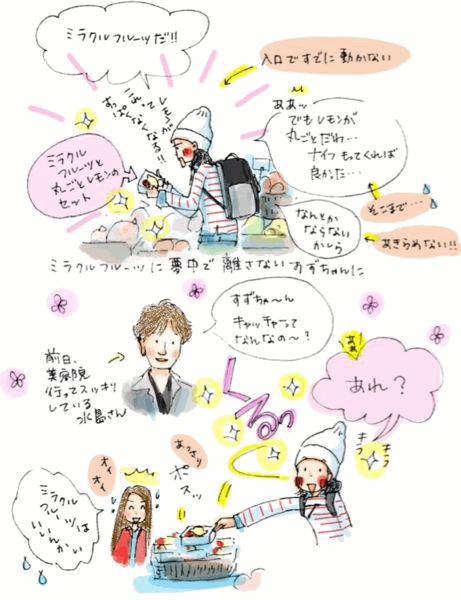 ミラクルフルーツだ!!
入口ですでに動かない
これってレモンが
すっぱくなくなる!!
ああッ
でもレモンが
丸ごとだわ…
ナイフもってくれば
良かた…
ミラクル
フルーツと
丸ごとレモンの
セット
そこまで…
なんとか
ならない
かしら
あきらめない!!
ミラクルフルーツに夢中で離さないすずちゃんに
すずちゃ〜ん
キャッチャーって
なんなの〜?
前日、
美容院
行ってスッキリ
している
水島さん
くるっ
あれ?
キラ
キラ
あっさり
ポスッ
オイ
オイ
ミラクル
フルーツは
いいんかい